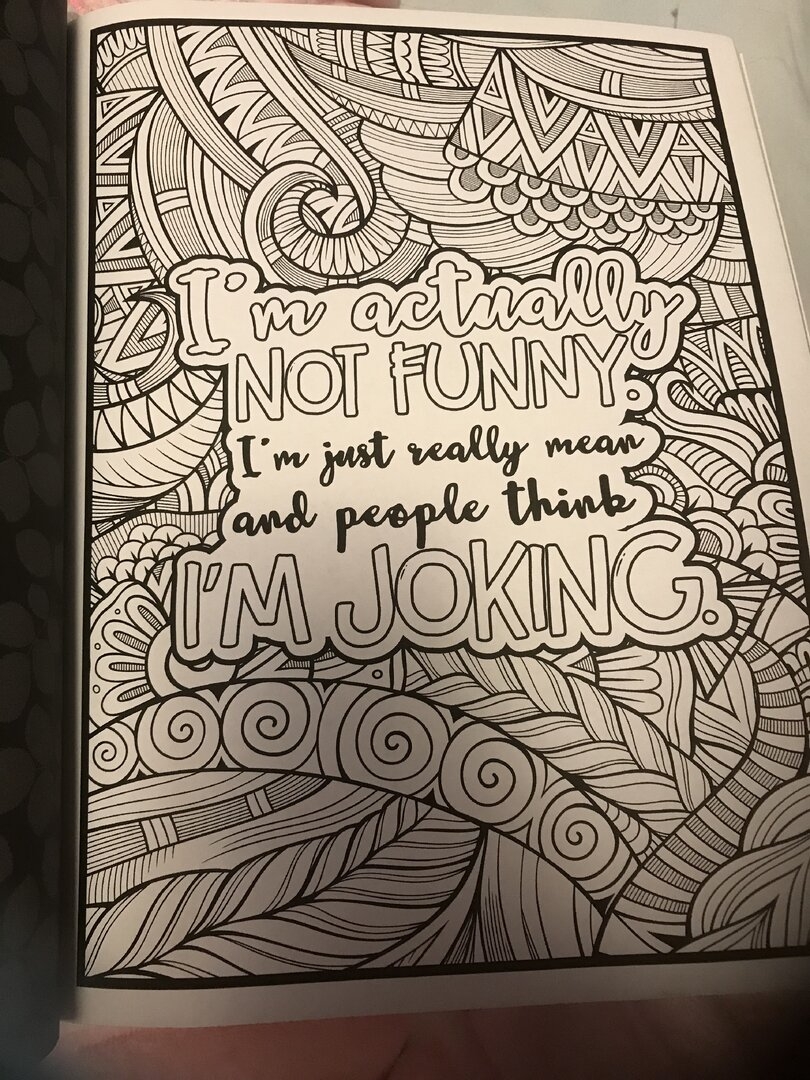 I'm actually
NOT FUNNY.
I'm just really mean
and people think
I'M JOKING.